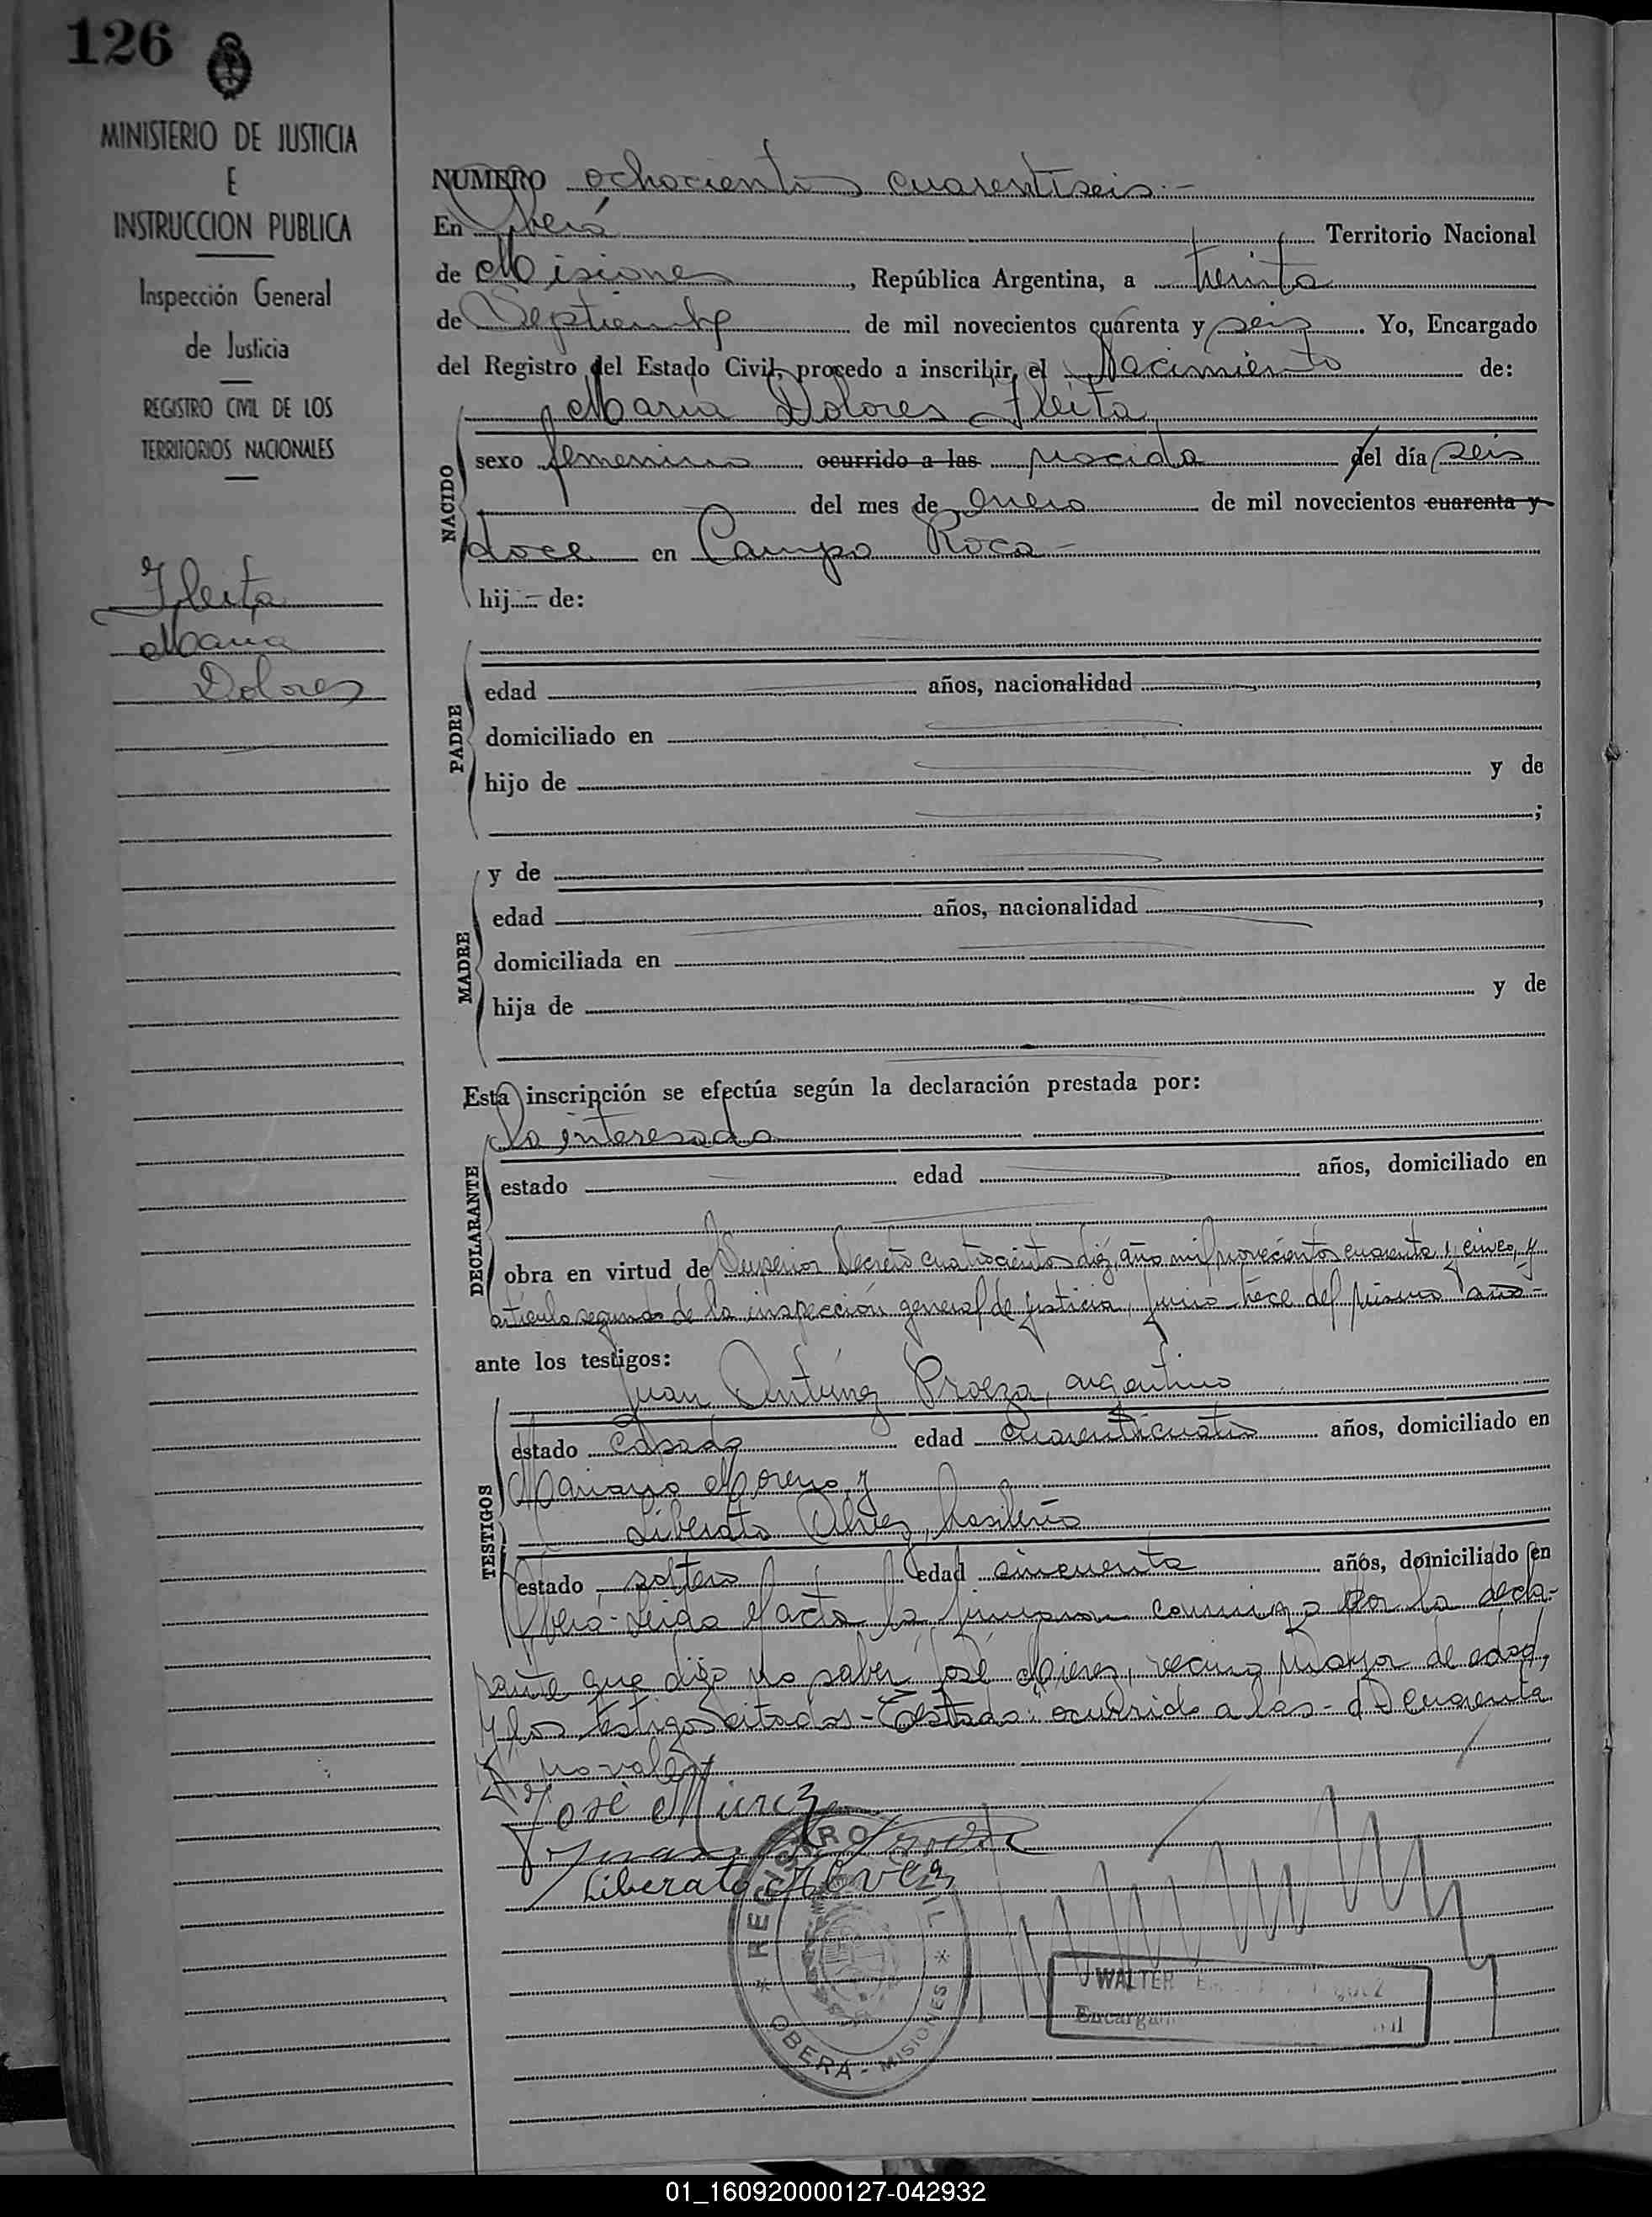 126
MINISTERIO DE JUSTICIA
E
INSTRUCCION PUBLICA
Inspección General
de Justicia
REGISTRO CIVIL DE LOS
TERRITORIOS NACIONALES
Fleita
Maria
Dolores
NUMERO ochocientos cuarentiseis.-
En Oberá Territorio Nacional
de Misiones, República Argentina, a treinta
de Septiembre de mil novecientos cuarenta y seis. Yo, Encargado
del Registro del Estado Civil, procedo a inscribir, el Nacimiento de:
Maria Dolores Fleita
NACIDO
sexo femenino ocurrido a las nacida del día seis
del mes de Enero de mil novecientos cuarenta y
doce en Campo Roca-
hij de:
PADRE
edad años, nacionalidad ,
domiciliado en
hijo de y de
;
MADRE
y de
edad años, nacionalidad ,
domiciliada en
hija de y de
Esta inscripción se efectúa según la declaración prestada por:
DECLARANTE
la interesada
estado edad años, domiciliado en
obra en virtud de Superior Decreto cuatrocientos diez, año mil novecientos cuarenta y cinco, y
artículo segundo de la inspección general de justicia, junio trece del mismo año-
ante los testigos:
TESTIGOS
Juan Antúnez Proeza, argentino
estado Casado edad cuarenticuatro años, domiciliado en
Mariano Moreno, y
Liberato Alvez, brasileño
estado soltero edad cincuenta años, domiciliado en
Oberá-Leida el acta la firmaron conmigo Por la decla-
rante que dijo no saber José Mierez, vecino mayor de edad,
y los testigos citados- Testado: ocurrido a las- d- cuarenta
y- no valen
José Mierez
Juan A. Proeza
Liberato Alvez
REGISTRO CIVIL
* OBERA - MISIONES *
WALTER
Encargado
01_160920000127-042932